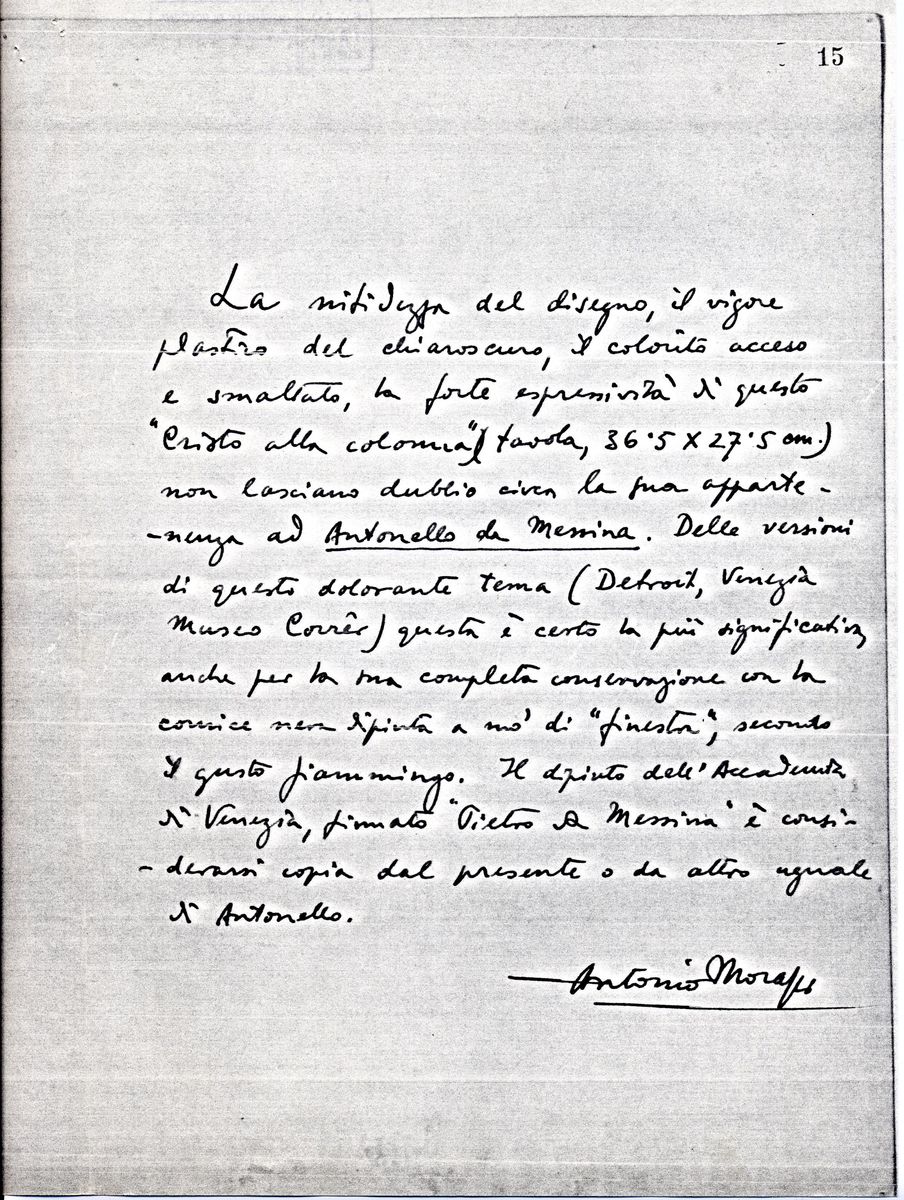 15
La nitidezza del disegno, il vigore
plastico del chiaroscuro, il colorito acceso
e smaltato, la forte espressività di questo
"Cristo alla colonna" (tavola, 36.5 X 27.5 cm.)
non lasciano dubbio circa la sua apparte-
-nenza ad Antonello da Messina. Delle versioni
di questo dolorante tema (Detroit, Venezia
Museo Corrêr) questa è certo la più significativa,
anche per la sua completa conservazione con la
cornice nera dipinta a mo' di "finestra", secondo
il gusto fiammingo. Il dipinto dell'Accademia
di Venezia, firmato "Pietro da Messina" è consi-
-derarsi copia dal presente o da altro uguale
di Antonello.
Antonio Morassi